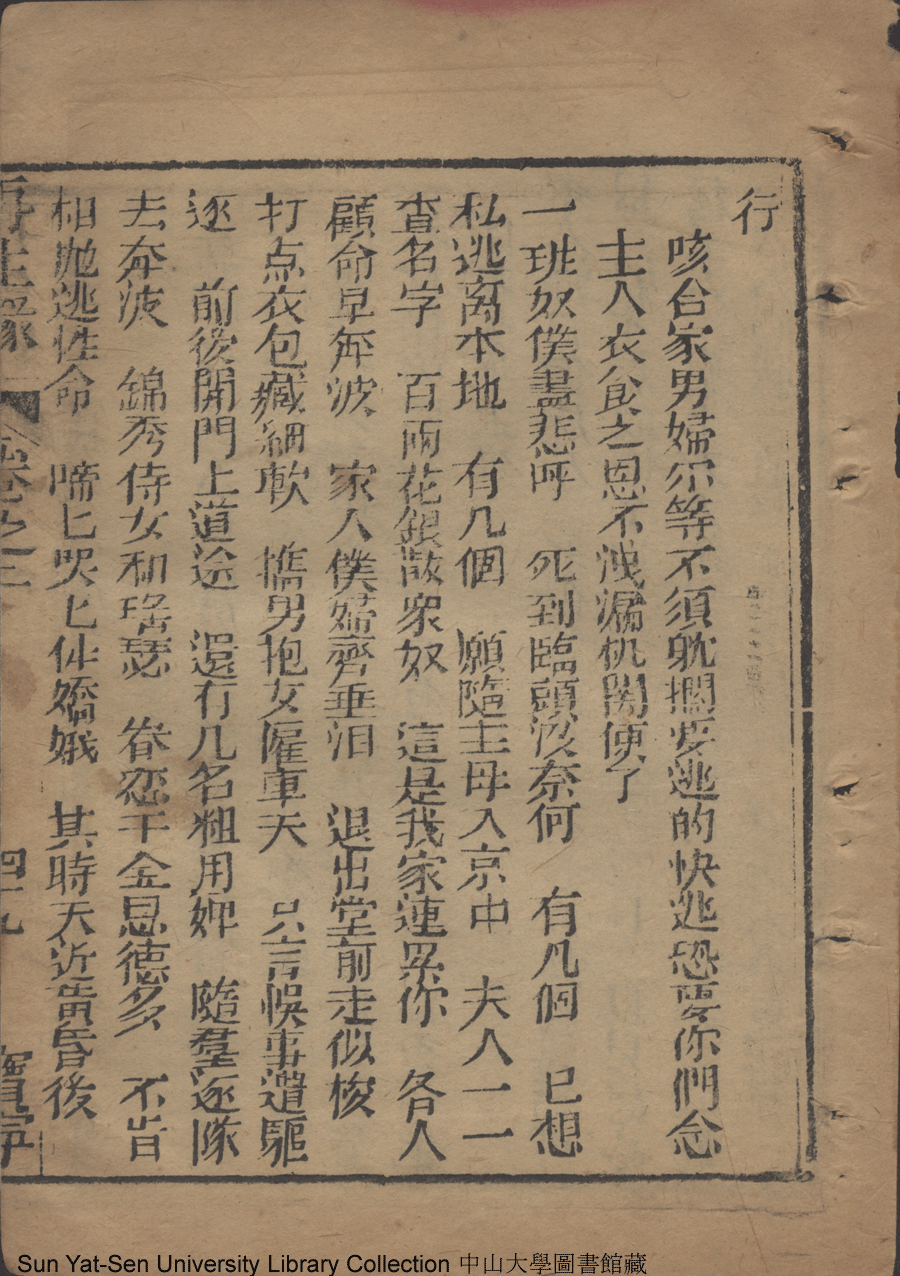 行
咳合家男婦尔等不須躭擱要逃的快逃恐要你們念
主人衣食之恩不洩漏机関便了
一班奴僕盡悲呼 死到臨頭没奈何 有几個 已想
私逃离本地 有几個 願隨主母入京中 夫人一一
查名字 百兩花銀散衆奴 這是我家連累你 各人
顧命早奔波 家人僕婦齊垂泪 退出堂前走似梭
打点衣包藏細軟 攜男抱女僱車天 只言悞事遣驅
逐 前後開門上道途 還有几名粗用婢 隨羣逐隊
去奔波 錦秀侍女和瑤瑟 眷恋千金恩德多 不肯
相抛逃性命 啼匕哭匕伴嬌娥 其時天近黃昏後
再生緣 卷之三 四十九 寳寜
Sun Yat-Sen University Library Collection 中山大學圖書館藏